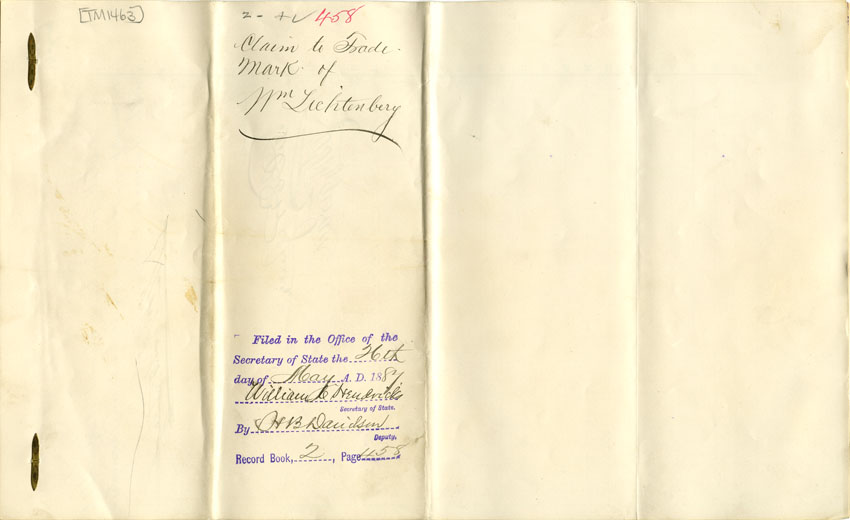 [TM1463]
458
Claim to Trade
Mark of
Wm Lichtenberg
Filed in the Office of the
Secretary of State the 26th
day of May A. D. 1887
William C Hendricks
Secretary of State.
By H B Davidson
Deputy.
Record Book, 2, Page 458